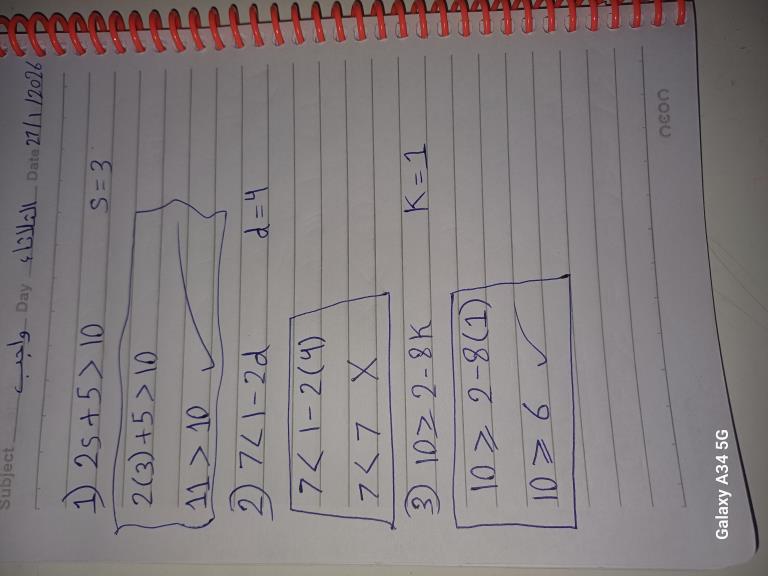 Subject واجب Day الثلاثاء Date 27/1/2026
1) 2s+5>10 s=3
2(3)+5>10
11>10 ✓
2) 7<1-2d d=4
7<1-2(4)
7<7 X
3) 10≥2-8K K=1
10≥2-8(1)
10≥6 ✓
neon
Galaxy A34 5G